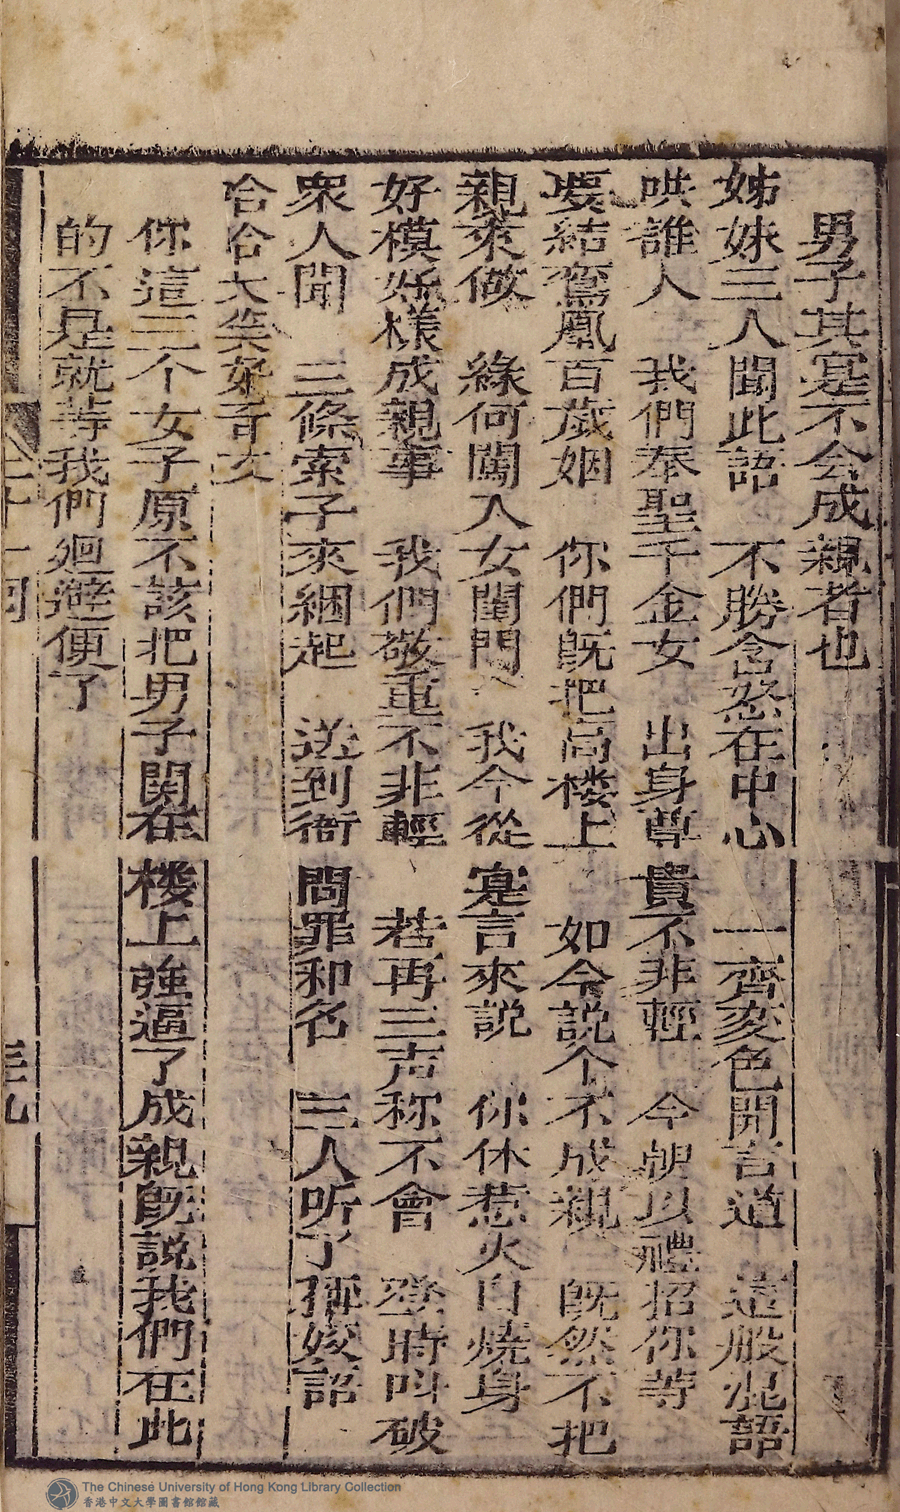 男子其寔不会成親者也
姊妹三人聞此語　不勝含怒在中心　一齊変色開言道　這般混語
哄誰人　我們奉聖千金女　出身尊貴不非輕　今朝以禮招你等
要結鸞鳳百歲姻　你們既把高楼上　如今説个不成親　既然不把
親來做　緣何闖入女閨門　我今從寔言來説　你休惹火自燒身
好模好樣成親事　我們敬重不非輕　若再三声称不會　登時叫破
衆人聞　三條索子來綑起　送到衙問罪和名　三人听了孫姣語
哈哈大笑好奇文
你這三个女子原不該把男子関在楼上強逼了成親既説我們在此
的不是就等我們廻避便了
The Chinese University of Hong Kong Library Collection
香港中文大學圖書館館藏